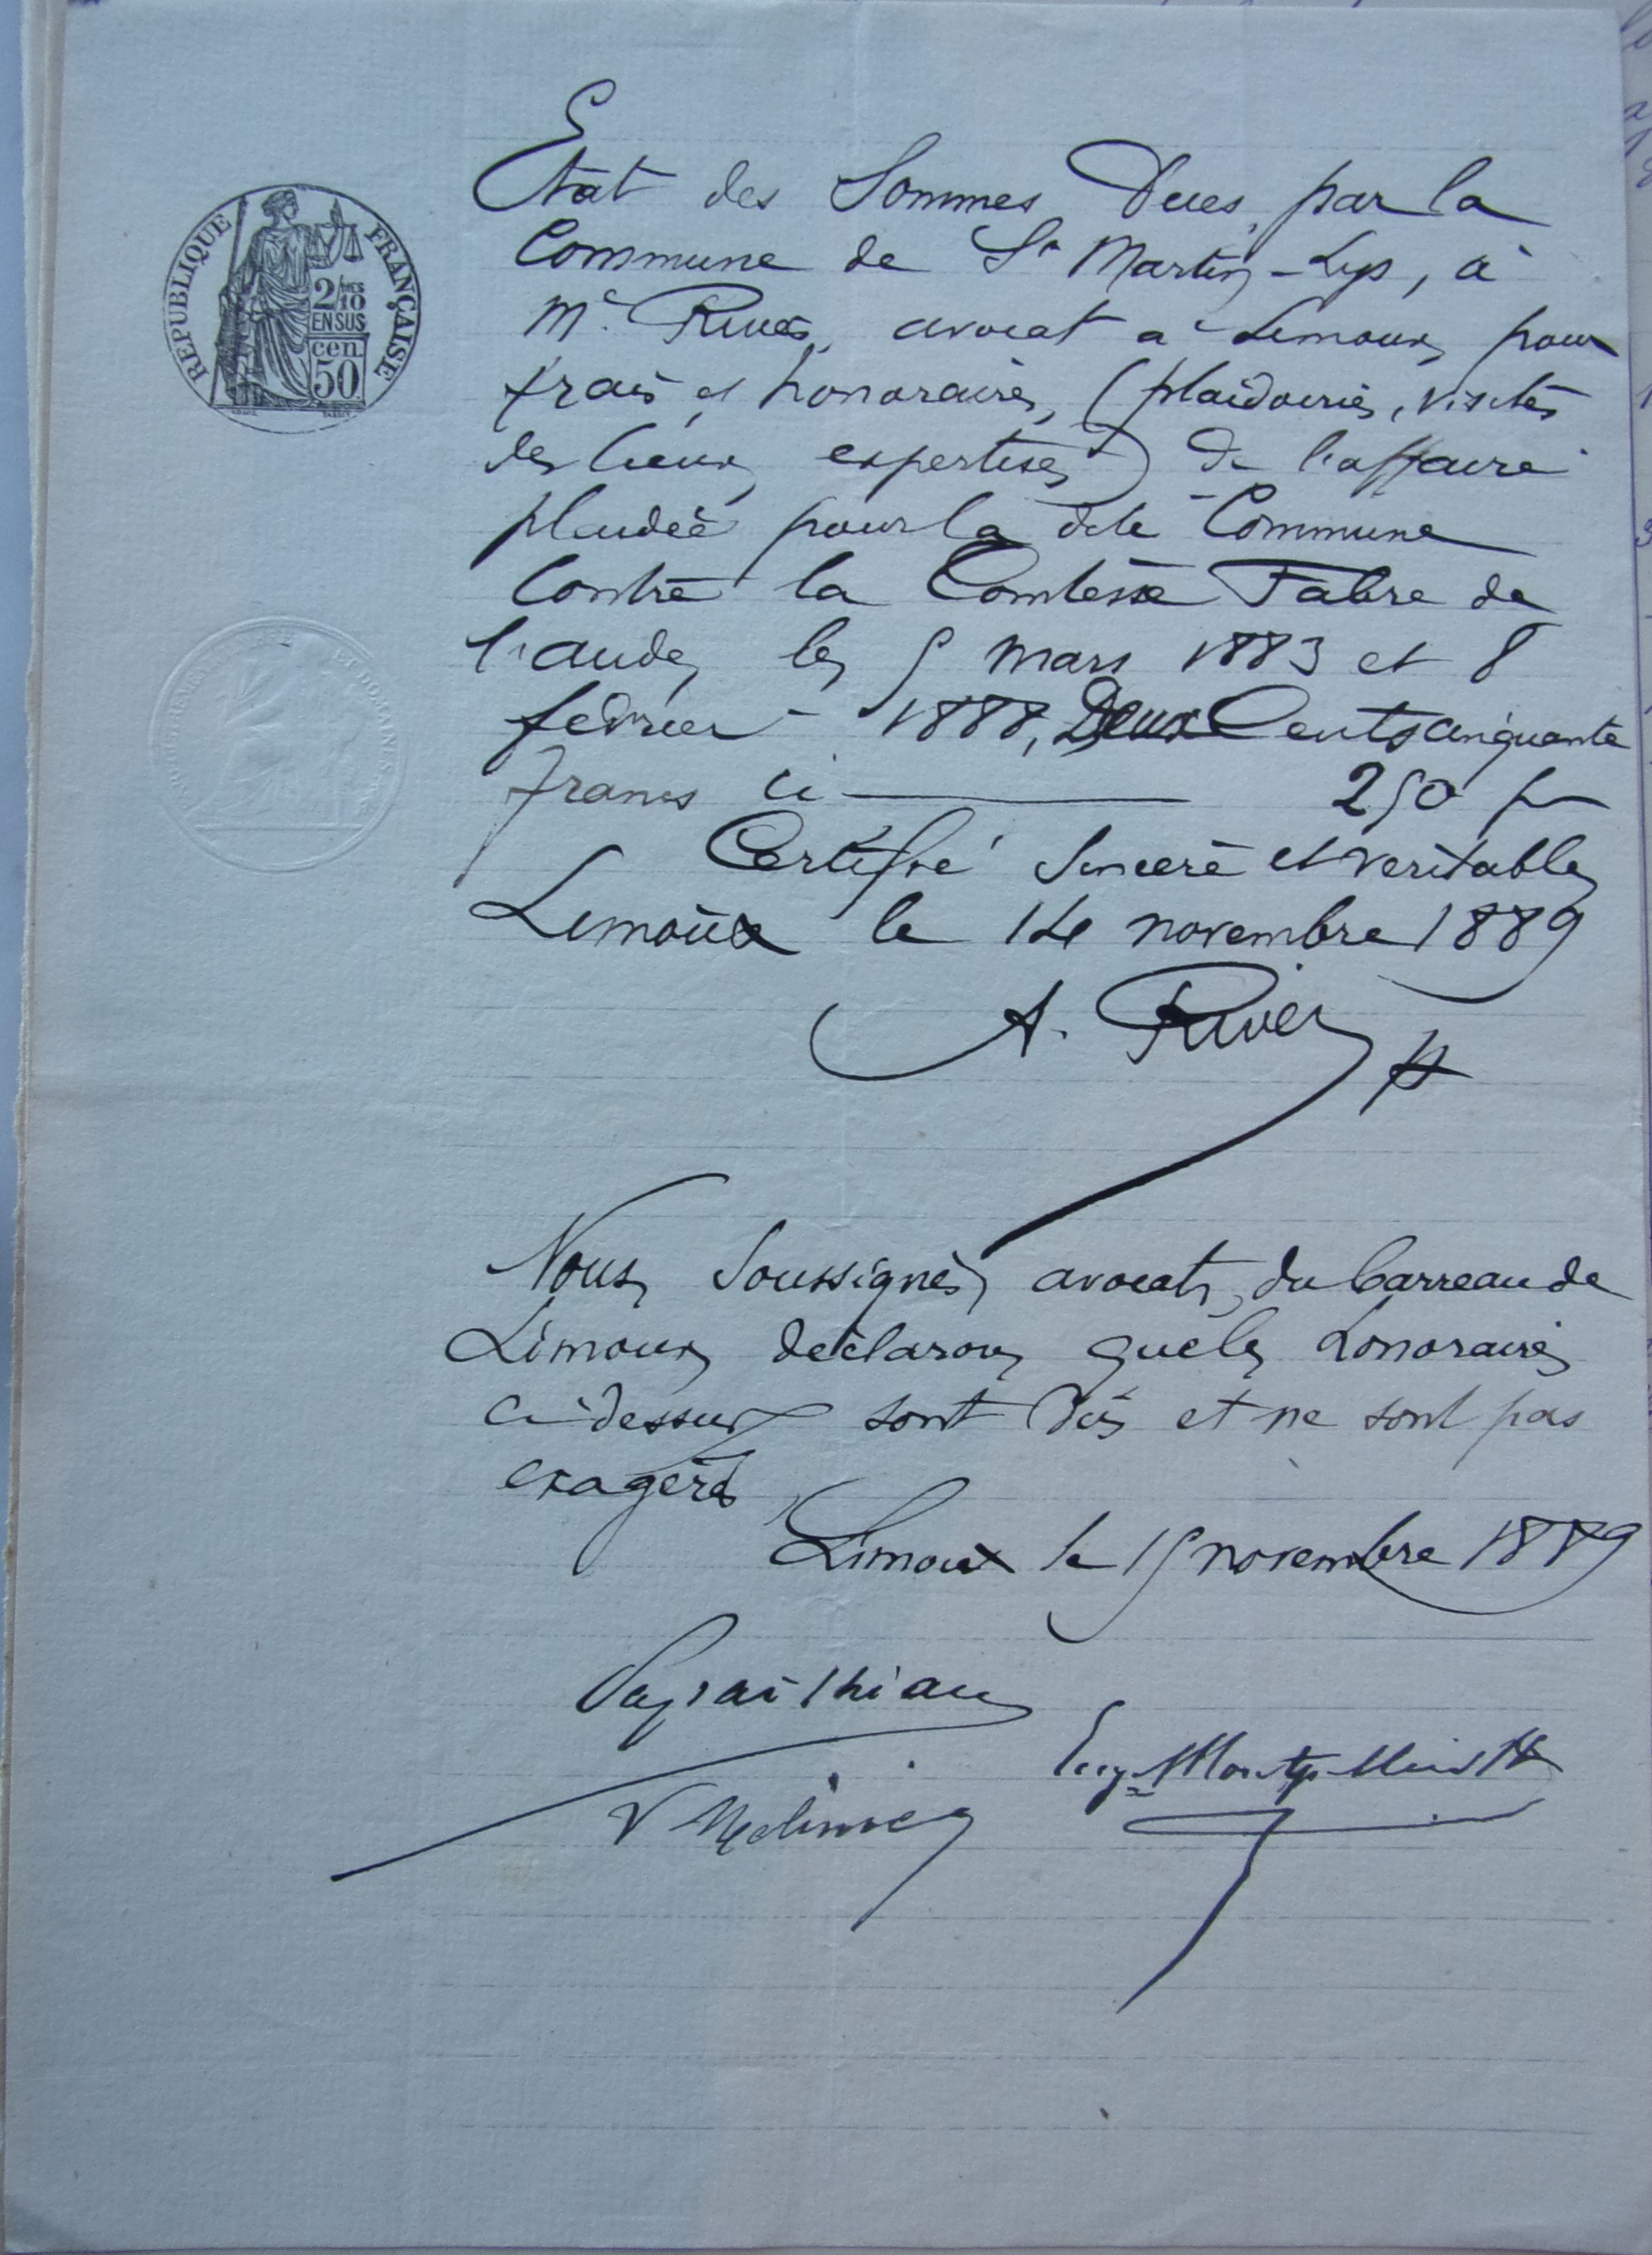 Etat des Sommes Dues par la
Commune de St Martin-Lys, à
Me Rives, avocat a Limoux, pour
frais et honoraires, (plaidoiries, visites
des lieux, expertises) de l'affaire
plaidée pour la dite Commune
Contre la Comtesse Fabre de
l'aude, les 5 mars 1883 et 8
fevrier - 1888, Deux Cents cinquante
francs ci 250 f
Certifié sincere et veritable
Limoux le 14 novembre 1889
A. Rives
Nous, Soussignés, avocats, du barreau de
Limoux, déclarons que les honoraires
ci-dessus sont dûs et ne sont pas
exagérés
Limoux le 15 novembre 1889
REPUBLIQUE FRANÇAISE
2/10 MES
EN SUS
50 cen.